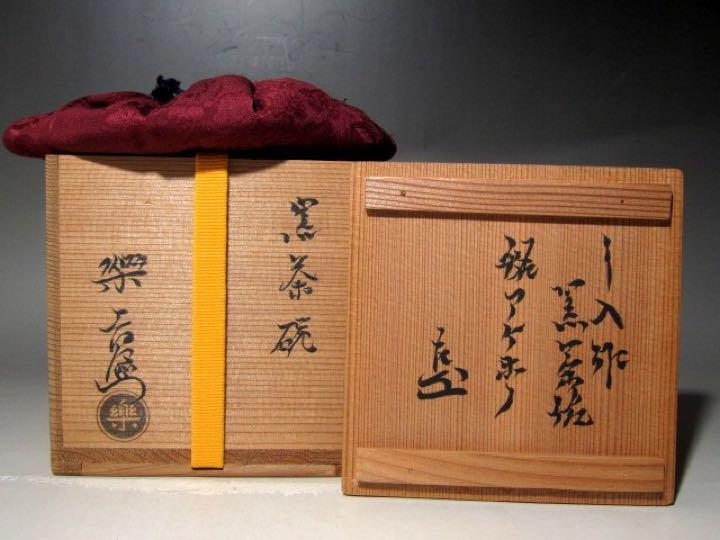 黒茶碗
樂吉左衛門
樂
了入作
黒茶碗
銘アケホノ